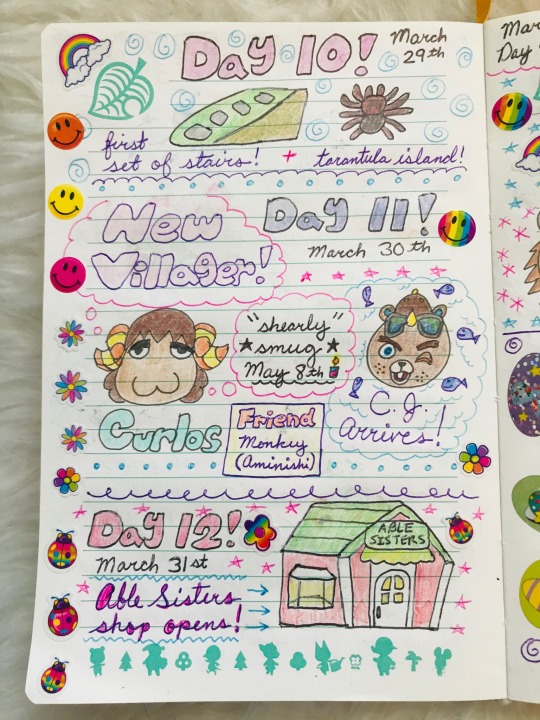 Day 10!
March
29th
first
set of stairs! + tarantula island!
New
Villager!
Day 11!
March 30th
"shearly"
smug
May 8th
Curlos
Friend
Monkey
(Aminishi)
C.J.
Arrives!
Day 12!
March 31st
Able Sisters
shop opens!
ABLE
SISTERS
Mar
Day